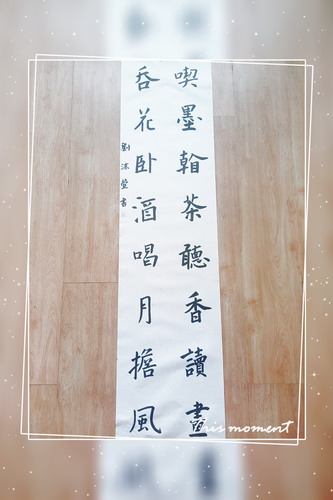 喫墨翰茶聽香讀畫
吞花卧酒唱月擔風
劉沐瑩書
this moment